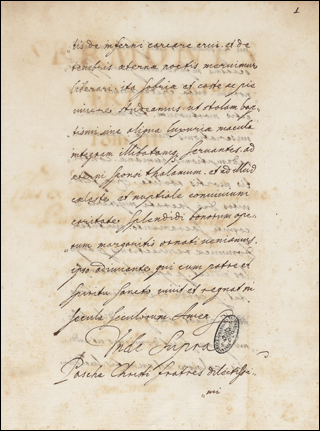 1
tis de inferni carcere erui, et de
tenebris æterna noctis meruimur
liberari, ita sobria et caste ac pie
vivere studeamus, ut stolam bap
tismi sine aliqua luxuria macula
integram illibatamq. servantes, ad
æterni sponsi thalamum, et ad illud
cæleste, et nuptiale convivium
caritate splendidi bonorum ope
rum margaritis ornati veniamus,
ipso adiuvante, qui cum patre et
spiritu sancto vivit et regnat in
secula seculorum Amen
Vide Supra
Pascha Christi fratres dilectissi
mi